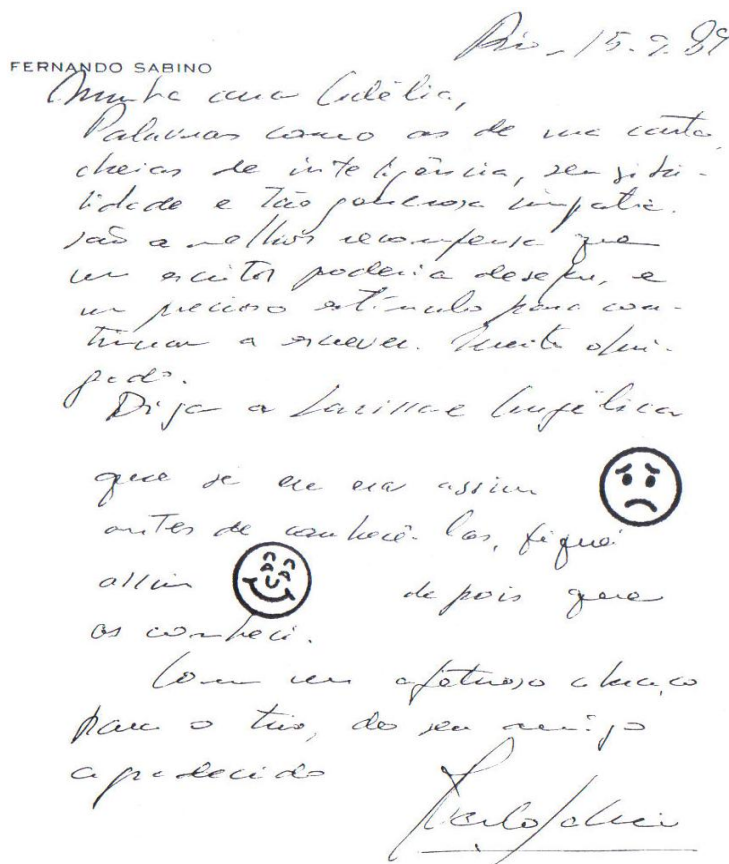 Rio, 15.9.89
FERNANDO SABINO
Minha cara Cidélia,
Palavras como as de sua carta,
cheias de inteligência, sensibi-
lidade e tão generosa simpatia
são a melhor recompensa que
um escritor poderia desejar, e
um precioso estímulo para con-
tinuar a escrever. Muito obri-
gado.
Diga a Larissa e Angélica
que se eu era assim
antes de conhecê-las, fiquei
assim depois que
as conheci.
Com um afetuoso abraço
para o trio, do seu amigo
agradecido